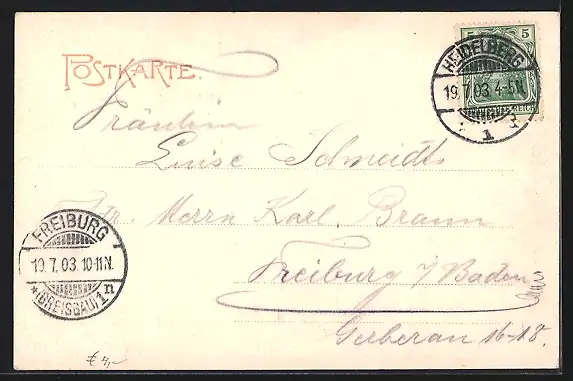 POSTKARTE.
5 5
REICH
HEIDELBERG
19.7.03.4-5N.
1
Fräulein
Luise Schmidt
Adr. Herrn Karl Braun
Freiburg i/Baden
Gerberau 16-18.
FREIBURG
19.7.03.10-11N.
*(BREISGAU)1n
€ 4,-